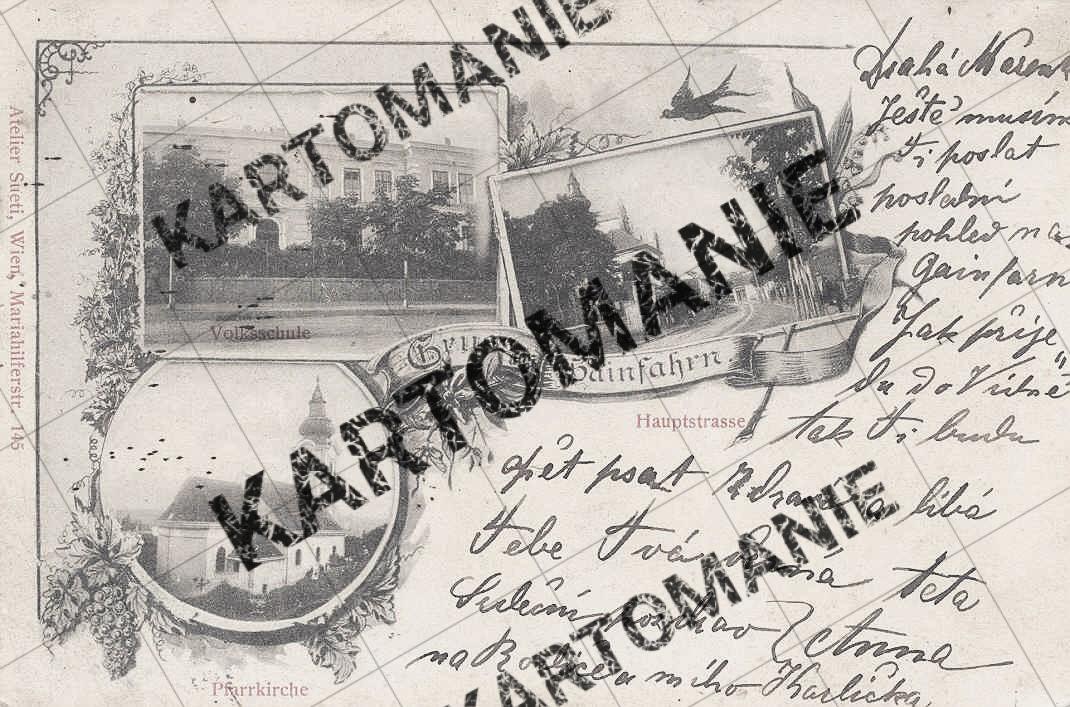 KARTOMANIE
KARTOMANIE
KARTOMANIE
KARTOMANIE
Atelier Sueti, Wien, Mariahilferstr. 145
Volksschule
Gainfahrn.
Hauptstrasse
Pfarrkirche
Drahá Mařenk
Ještě musím
Ti poslat
poslední
pohled na
Gainfarn
Jak přije
du do Vídně
tak Ti budu
opět psat
líbá
Tebe Tvá
teta
Srdečný pozdrav Anna
na a mího Karlíčka.